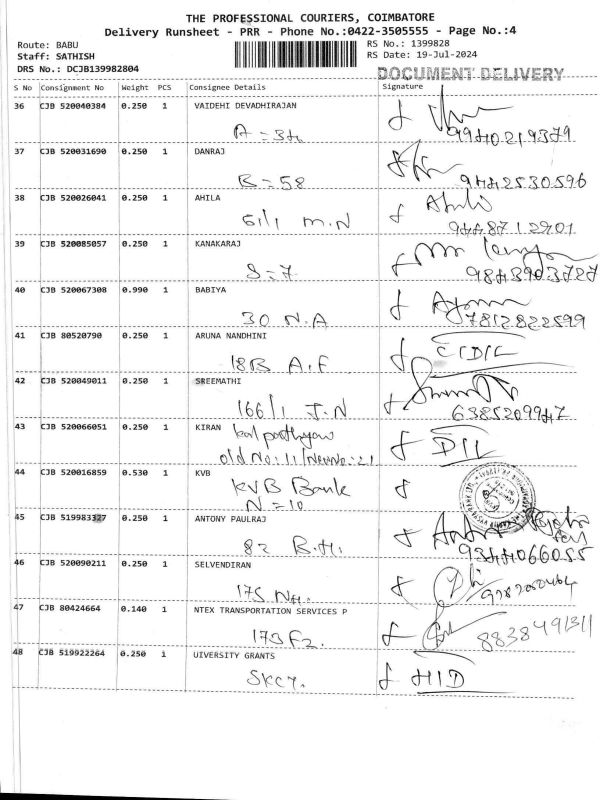 THE PROFESSIONAL COURIERS, COIMBATORE
Delivery Runsheet - PRR - Phone No.:0422-3505555 - Page No.:4
Route: BABU
RS No.: 1399828
Staff: SATHISH
RS Date: 19-Jul-2024
DRS No.: DCJB139982804
DOCUMENT DELIVERY
S No Consignment No Weight PCS Consignee Details Signature
36 CJB 520040384 0.250 1 VAIDEHI DEVADHIRAJAN
9940219379
37 CJB 520031690 0.250 1 DANRAJ
B = 58 9442530596
38 CJB 520026041 0.250 1 AHILA
61/1 M.N 9487712901
39 CJB 520085057 0.250 1 KANAKARAJ
S = 7 9843903727
40 CJB 520067308 0.990 1 BABIYA
30 N.A 7812822599
41 CJB 80520790 0.250 1 ARUNA NANDHINI
18B A.F
42 CJB 520049011 0.250 1 SREEMATHI
166/1 J.N 6385209947
43 CJB 520066051 0.250 1 KIRAN
old No: 11/New No: 21 DIL
44 CJB 520016859 0.530 1 KVB
KVB Bank
N = 10
45 CJB 519983327 0.250 1 ANTONY PAULRAJ
82 B.H. 9344066055
46 CJB 520090211 0.250 1 SELVENDIRAN
175 NH.
47 CJB 80424664 0.140 1 NTEX TRANSPORTATION SERVICES P
173 F2. 8838491311
48 CJB 519922264 0.250 1 UIVERSITY GRANTS
SKCT. HID